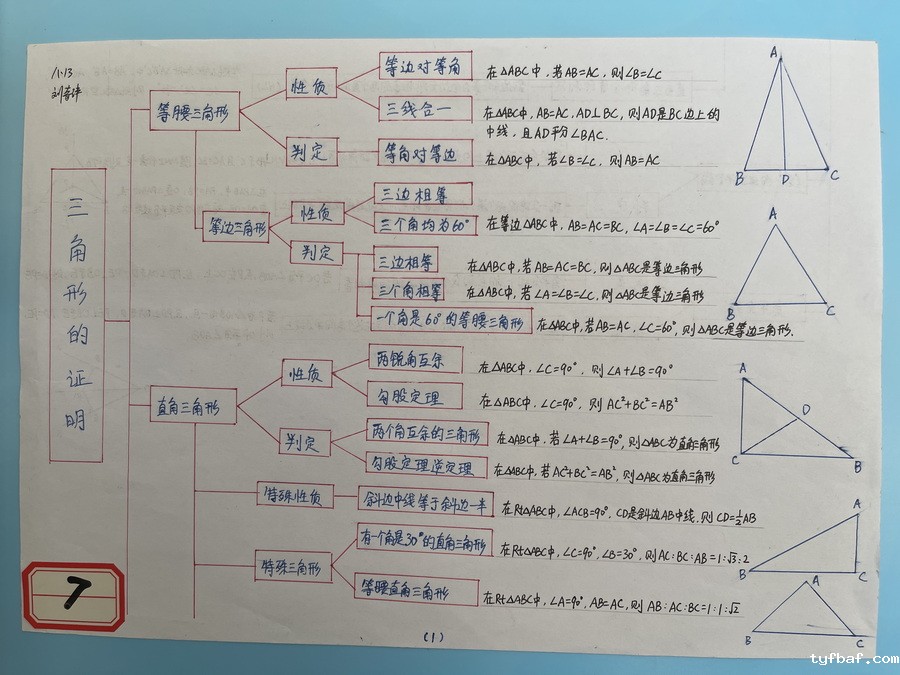 1.13
三角形的证明
等腰三角形
性质
等边对等角
在△ABC中,若AB=AC,则∠B=∠C
三线合一
在△ABC中,AB=AC,AD⊥BC,则AD是BC边上的
中线,且AD平分∠BAC.
判定
等角对等边
在△ABC中,若∠B=∠C,则AB=AC
A
B
D
C
等边三角形
性质
三边相等
三个角均为60°
在等边△ABC中,AB=AC=BC,∠A=∠B=∠C=60°
判定
三边相等
在△ABC中,若AB=AC=BC,则△ABC是等边三角形
三个角相等
在△ABC中,若∠A=∠B=∠C,则△ABC是等边三角形
一个角是60°的等腰三角形
在△ABC中,若AB=AC,∠C=60°,则△ABC是等边三角形.
A
B
C
直角三角形
性质
两锐角互余
在△ABC中,∠C=90°,则∠A+∠B=90°
勾股定理
在△ABC中,∠C=90°,则AC²+BC²=AB²
判定
两个角互余的三角形
在△ABC中,若∠A+∠B=90°,则△ABC为直角三角形
勾股定理逆定理
在△ABC中,若AC²+BC²=AB²,则△ABC为直角三角形
A
D
C
B
特殊性质
斜边中线等于斜边一半
在Rt△ABC中,∠ACB=90°,CD是斜边AB中线,则CD=½AB
特殊三角形
有一个角是30°的直角三角形
在Rt△ABC中,∠C=90°,∠B=30°,则AC:BC:AB=1:√3:2
A
B
C
等腰直角三角形
在Rt△ABC中,∠A=90°,AB=AC,则AB:AC:BC=1:1:√2
A
B
C
7
(1)
tyfbaf.com